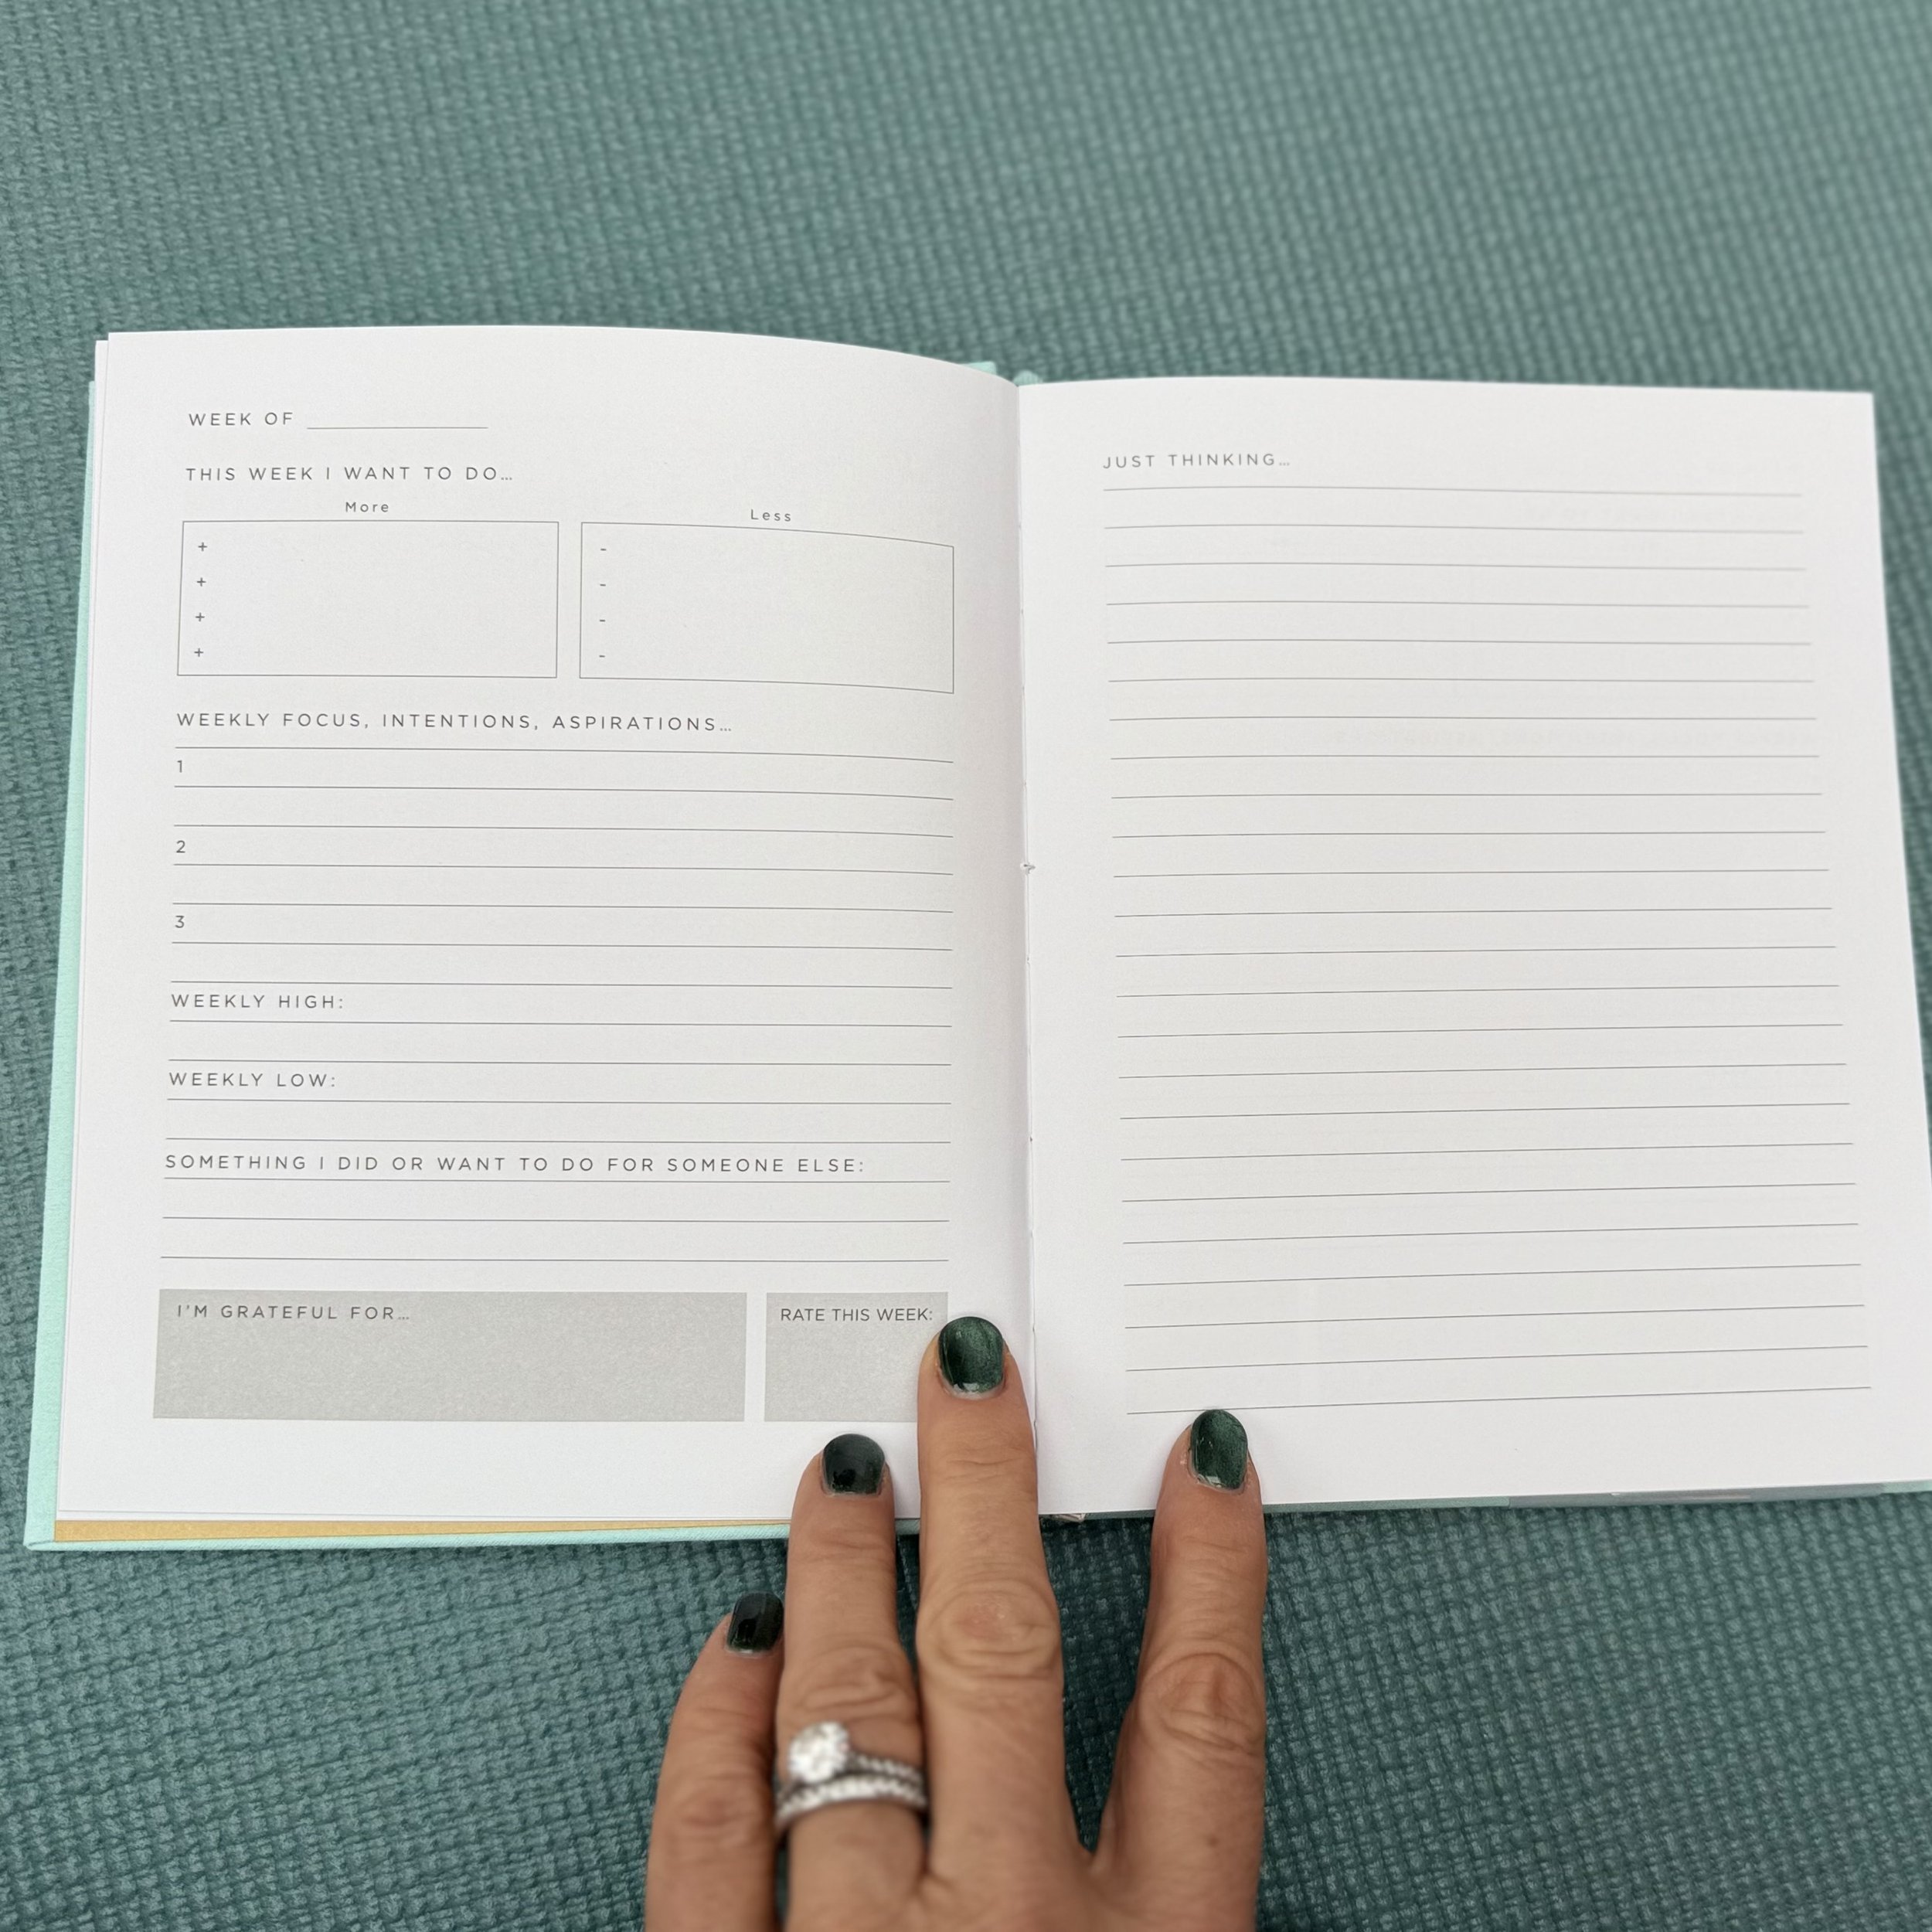 WEEK OF
THIS WEEK I WANT TO DO…
More
Less
+
+
+
+
-
-
-
-
WEEKLY FOCUS, INTENTIONS, ASPIRATIONS…
1
2
3
WEEKLY HIGH:
WEEKLY LOW:
SOMETHING I DID OR WANT TO DO FOR SOMEONE ELSE:
I'M GRATEFUL FOR…
RATE THIS WEEK:
JUST THINKING…